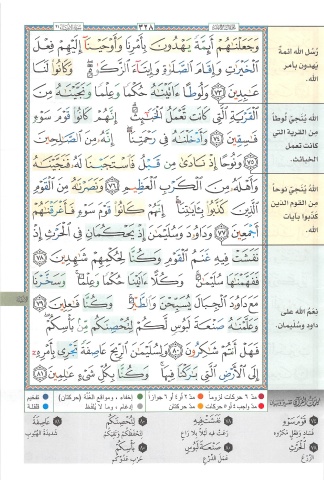 ٣٢٨
وَجَعَلْنَٰهُمْ أَئِمَّةً يَهْدُونَ بِأَمْرِنَا وَأَوْحَيْنَآ إِلَيْهِمْ فِعْلَ
ٱلْخَيْرَٰتِ وَإِقَامَ ٱلصَّلَوٰةِ وَإِيتَآءَ ٱلزَّكَوٰةِ ۖ وَكَانُوا۟ لَنَا
عَٰبِدِينَ ٧٣ وَلُوطًا ءَاتَيْنَٰهُ حُكْمًا وَعِلْمًا وَنَجَّيْنَٰهُ مِنَ
ٱلْقَرْيَةِ ٱلَّتِى كَانَت تَّعْمَلُ ٱلْخَبَٰٓئِثَ ۗ إِنَّهُمْ كَانُوا۟ قَوْمَ سَوْءٍ
فَٰسِقِينَ ٧٤ وَأَدْخَلْنَٰهُ فِى رَحْمَتِنَآ ۖ إِنَّهُۥ مِنَ ٱلصَّٰلِحِينَ
٧٥ وَنُوحًا إِذْ نَادَىٰ مِن قَبْلُ فَٱسْتَجَبْنَا لَهُۥ فَنَجَّيْنَٰهُ
وَأَهْلَهُۥ مِنَ ٱلْكَرْبِ ٱلْعَظِيمِ ٧٦ وَنَصَرْنَٰهُ مِنَ ٱلْقَوْمِ
ٱلَّذِينَ كَذَّبُوا۟ بِـَٔايَٰتِنَآ ۚ إِنَّهُمْ كَانُوا۟ قَوْمَ سَوْءٍ فَأَغْرَقْنَٰهُمْ
أَجْمَعِينَ ٧٧ وَدَاوُۥدَ وَسُلَيْمَٰنَ إِذْ يَحْكُمَانِ فِى ٱلْحَرْثِ إِذْ
نَفَشَتْ فِيهِ غَنَمُ ٱلْقَوْمِ وَكُنَّا لِحُكْمِهِمْ شَٰهِدِينَ ٧٨
فَفَهَّمْنَٰهَا سُلَيْمَٰنَ ۚ وَكُلًّا ءَاتَيْنَا حُكْمًا وَعِلْمًا ۚ وَسَخَّرْنَا
مَعَ دَاوُۥدَ ٱلْجِبَالَ يُسَبِّحْنَ وَٱلطَّيْرَ ۚ وَكُنَّا فَٰعِلِينَ ٧٩
وَعَلَّمْنَٰهُ صَنْعَةَ لَبُوسٍ لَّكُمْ لِتُحْصِنَكُم مِّنۢ بَأْسِكُمْ ۖ
فَهَلْ أَنتُمْ شَٰكِرُونَ ٨٠ وَلِسُلَيْمَٰنَ ٱلرِّيحَ عَاصِفَةً تَجْرِى بِأَمْرِهِۦٓ
إِلَى ٱلْأَرْضِ ٱلَّتِى بَٰرَكْنَا فِيهَا ۚ وَكُنَّا بِكُلِّ شَىْءٍ عَٰلِمِينَ ٨١
رُسُل الله أئمةٌ
يَهدون بأمر
الله.
الله يُنجّي لُوطاً
من القرية التي
كانت تعمل
الخبائث.
الله يُنجّي نوحاً
من القوم الذين
كذّبوا بآيات
الله.
نِعَمُ الله على
داود وسُليمان.
مدّ ٦ حركات لزوماً
مدّ ٢ أو ٤ أو ٦ جوازاً
إخفاء، ومواقع الغُنَّة (حركتان)
تفخيم
مدّ واجب ٤ أو ٥ حركات
مدّ حركتان
إدغام، وما لا يُلفَظ
قلقلة
قَوْمَ سَوْءٍ
فساد وفعل مكروه
الْحَرْثِ
الزَّرْع
نَفَشَتْ فِيهِ
صَنْعَةَ لَبُوسٍ
عمل الدُّروع
لِتُحْصِنَكُم
بَأْسِكُمْ
حَرْب عَدُوِّكم
عَاصِفَةً
شديدةَ الهبوب